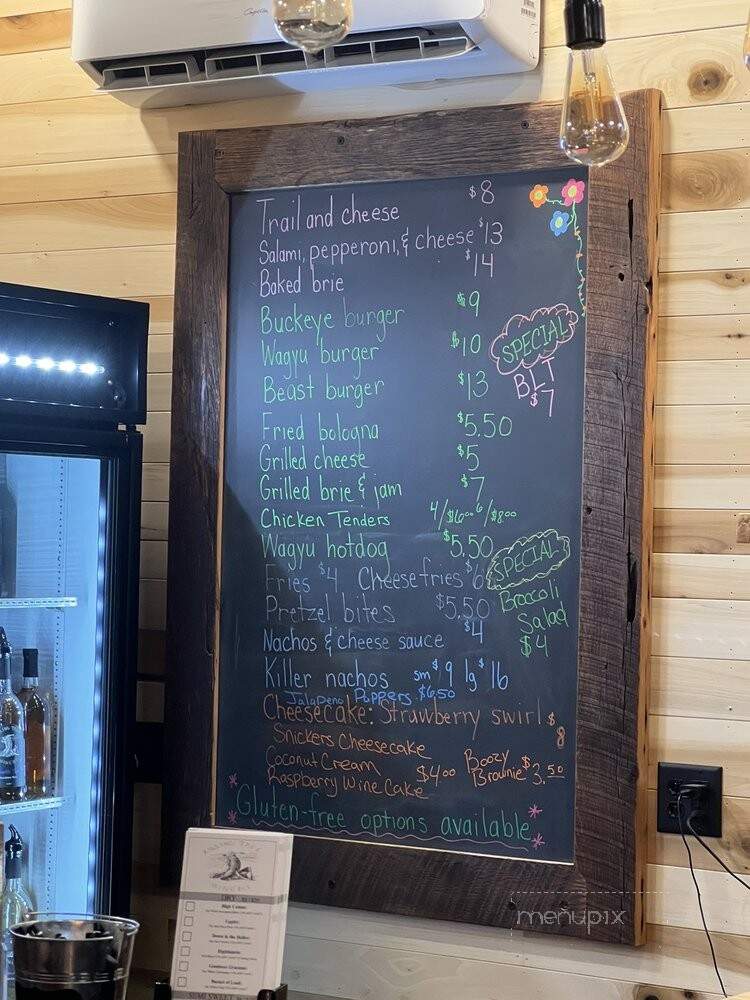 Trail and cheese $8
Salami, pepperoni, & cheese $13
Baked brie $14
Buckeye burger $9
Wagyu burger $10
Beast burger $13
SPECIAL
BLT
$7
Fried bologna $5.50
Grilled cheese $5
Grilled brie & jam $7
Chicken Tenders 4/$6.00 6/$8.00
Wagyu hotdog $5.50
Fries $4 Cheese fries $6
Pretzel bites $5.50
SPECIAL!
Broccoli
Salad
$4
Nachos & cheese sauce $4
Killer nachos sm $9 lg $16
Jalapeno Poppers $6.50
Cheesecake: Strawberry swirl $8
Snickers Cheesecake
Coconut Cream
Raspberry Wine Cake $4.00
Boozy
Brownie $3.50
* Gluten-free options available *
WINERY
menupix